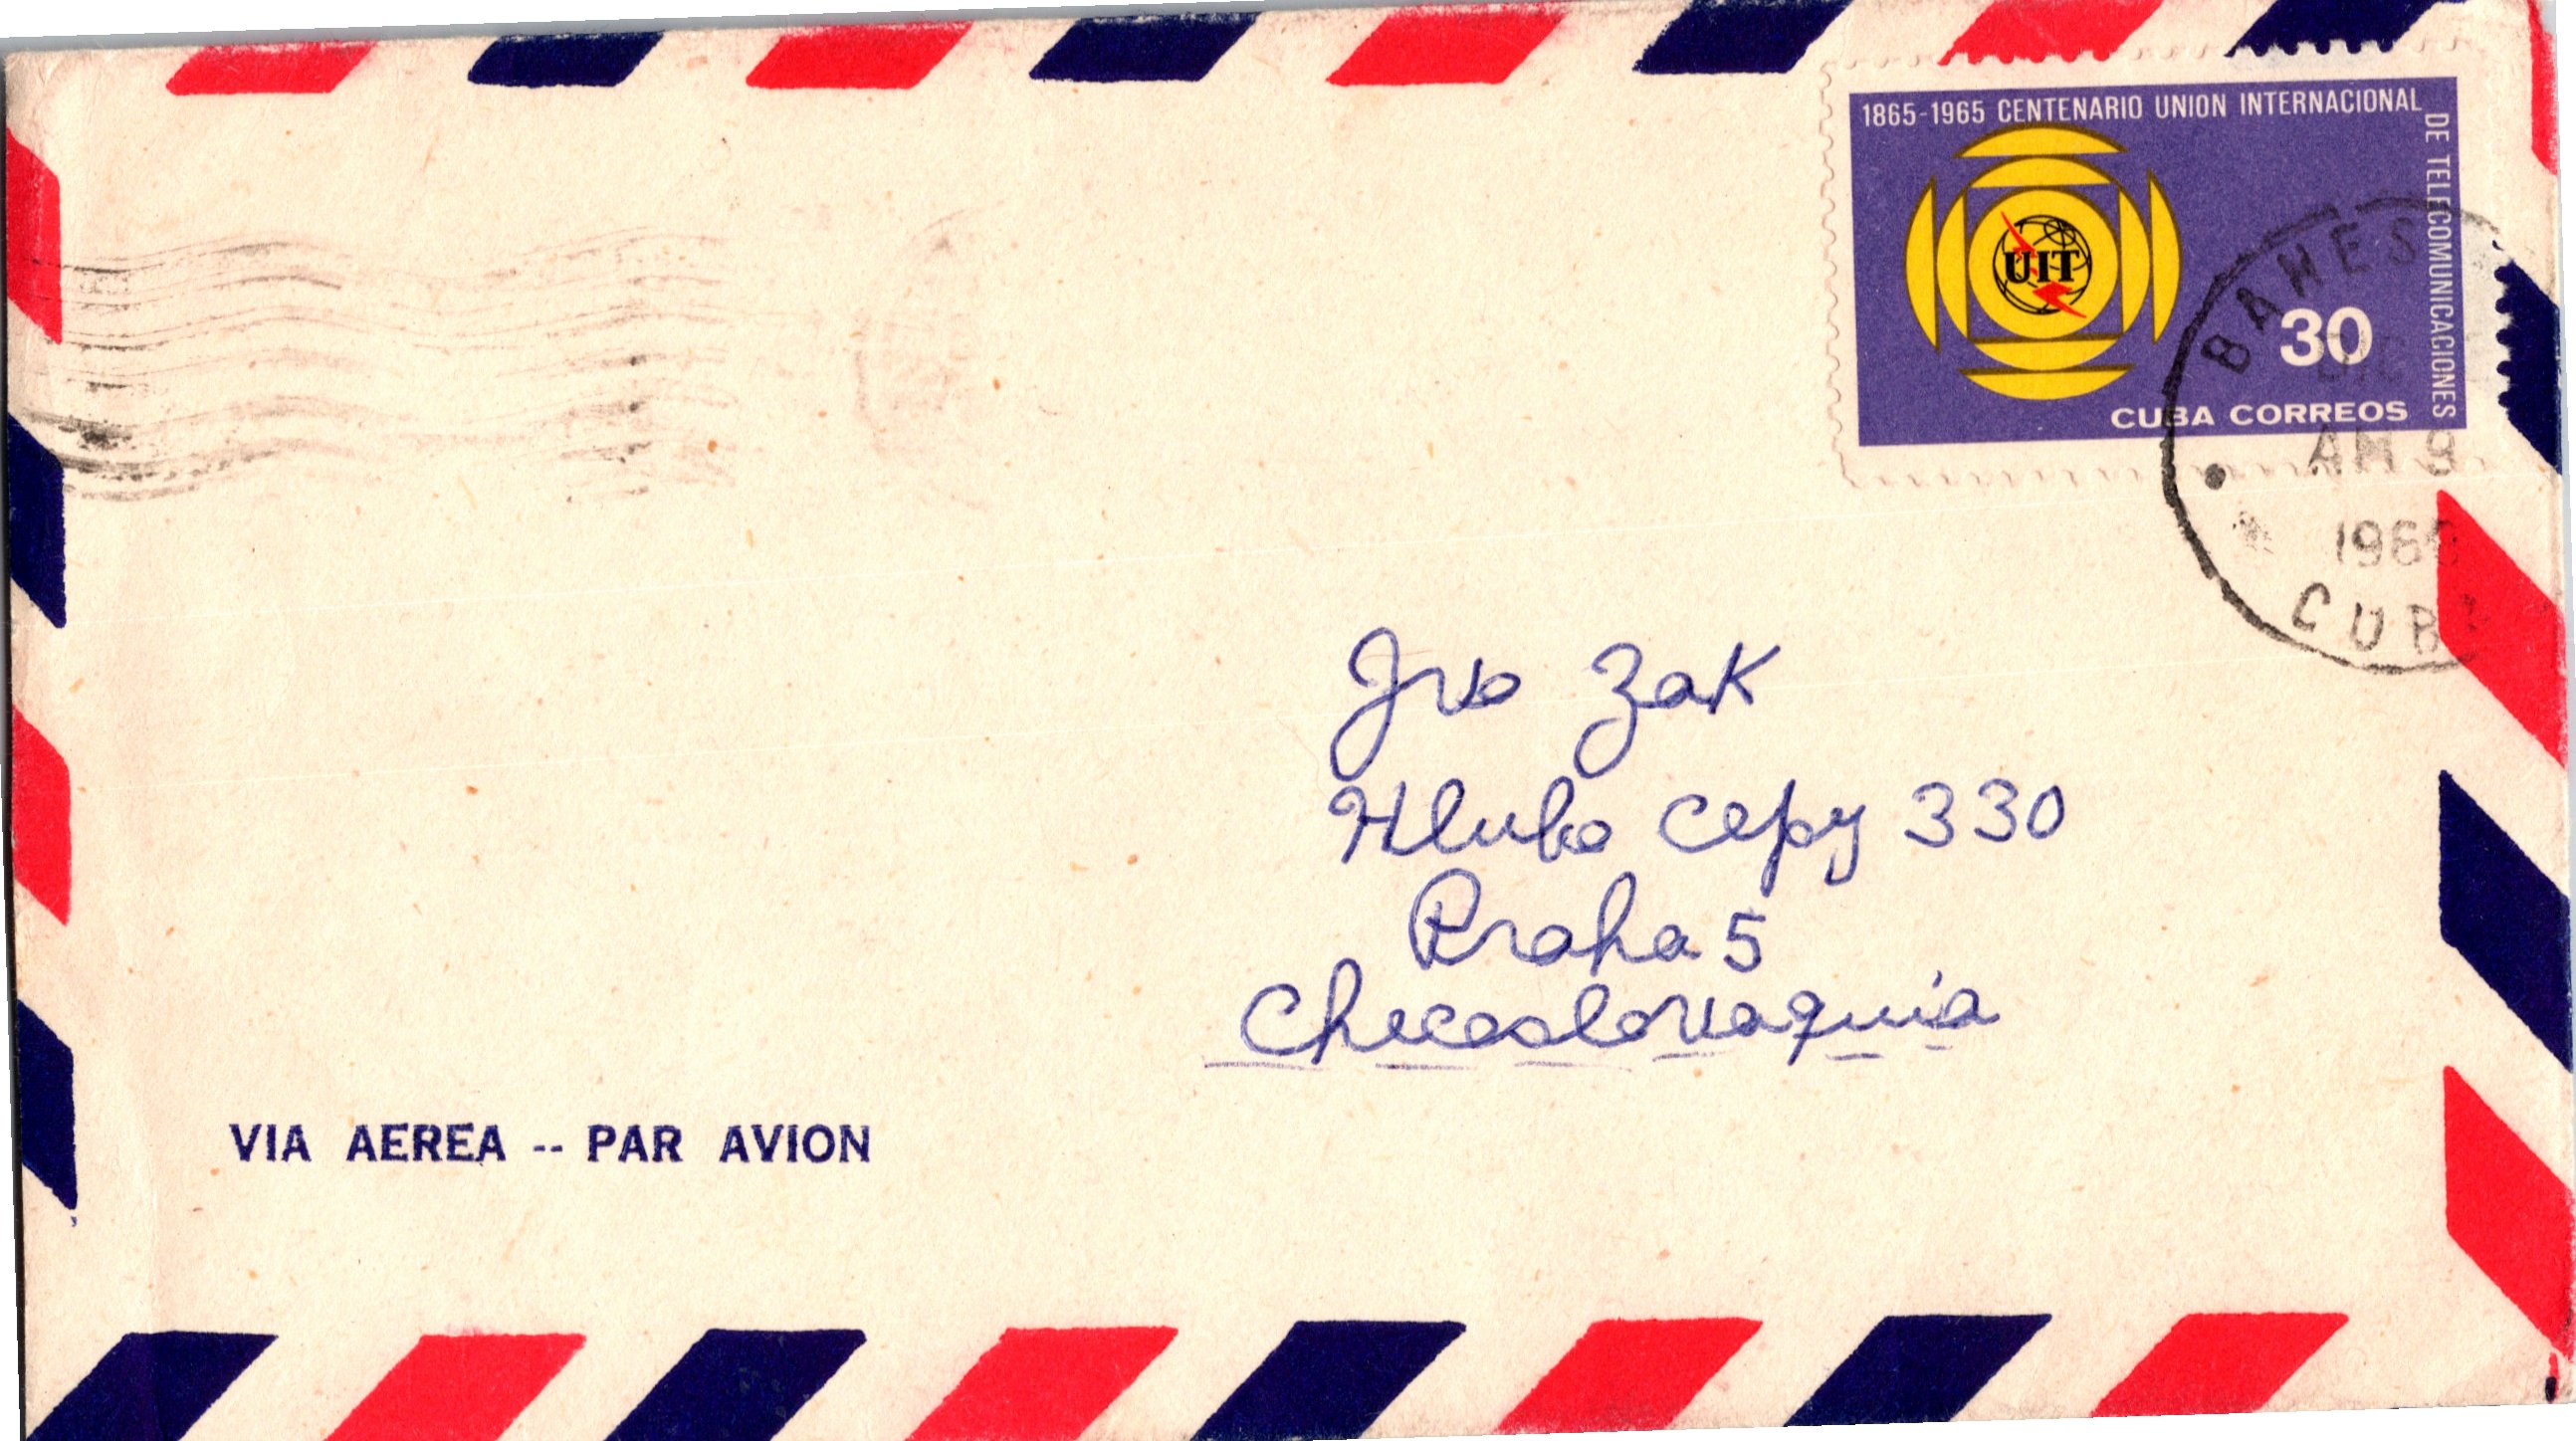 1865-1965 CENTENARIO UNION INTERNACIONAL
DE TELECOMUNICACIONES
UIT
30
CUBA CORREOS
BANES
DIC
AM 9
196
CUBA
Ivo Zak
Hlubo cepy 330
Praha 5
Checoslovaquia
VIA AEREA -- PAR AVION